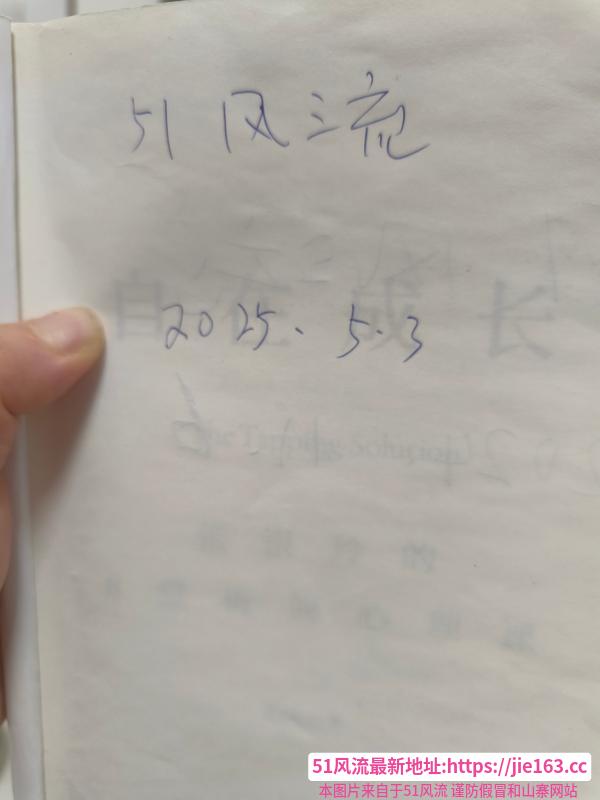 51风流
自在成长
2025.5.3
The Tapping Solution
51风流最新地址:https://jie163.cc
本图片来自于51风流 谨防假冒和山寨网站